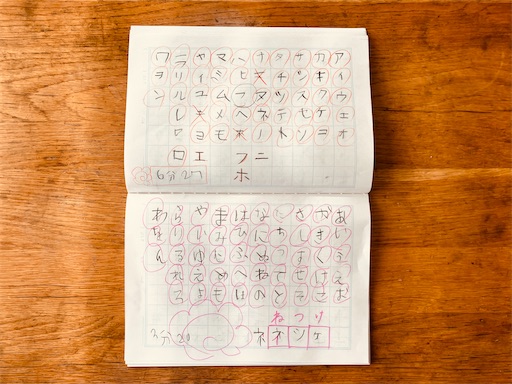 アイウエオ
カキクケコ
サシスセソ
タチツテト
ナヌネノニ
ハヒフヘホフホ
マミムメモ
ヤイユエヨエ
ラリルレロロ
ワヲン
6分27
あいうえお
かきくけこ
さしすせそ
たちつてと
なにぬねの
はひふへほ
まみむめも
やいゆえよ
らりるれろ
わをん
ねつり
ネネツケ
3分20